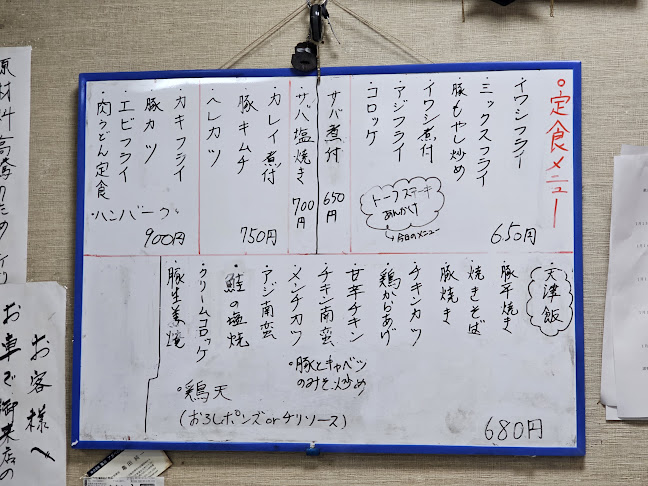 ○定食メニュー
・イワシフライ
・ミックスフライ
・豚もやし炒め
・イワシ煮付
・アジフライ
・コロッケ
トーフステーキ
あんかけ
今日のメニュー
650円
・サバ煮付
650円
・サバ塩焼き
700円
・カレイ煮付
・豚キムチ
・ヘレカツ
750円
・カキフライ
・豚カツ
・エビフライ
・肉うどん定食
・ハンバーグ
900円
・天津飯
・豚平焼き
・焼きそば
・豚焼き
・チキンカツ
・鶏からあげ
・甘辛チキン
・チキン南蛮
・メンチカツ
・アジ南蛮
・鮭の塩焼
・クリームコロッケ
・豚生姜焼
○豚とキャベツ
のみそ炒め
○鶏天
(おろしポンズorチリソース)
680円
原材料高騰のため
お客様へ
お車で御来店の